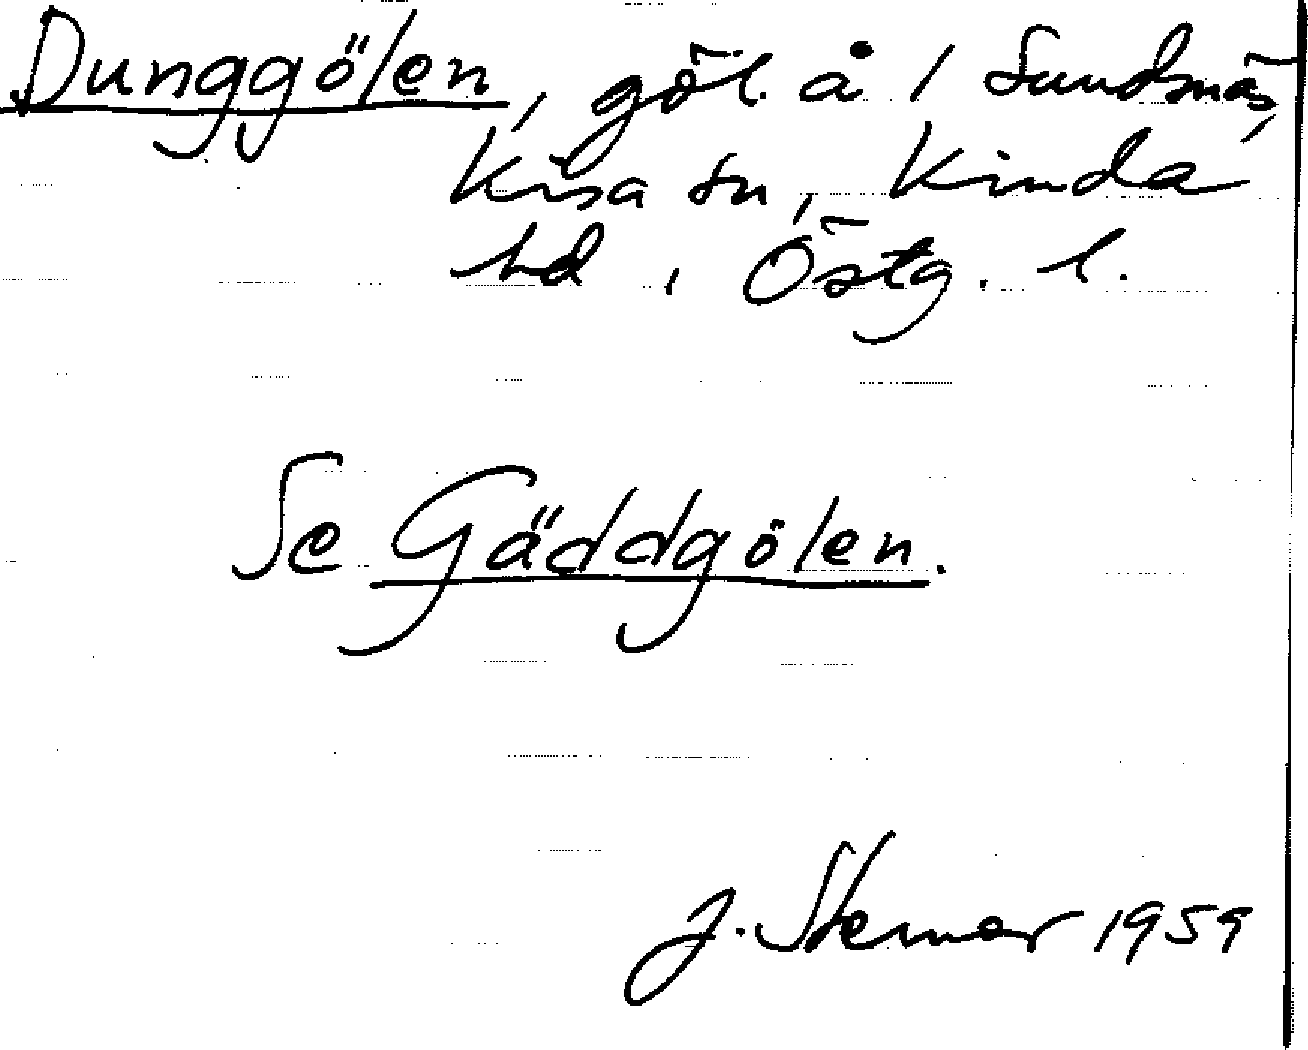 Dunggölen, göl å 1 Sundsnäs,
Kisa sn, Kinda
hd, Östg. l.
Se Gäddgölen.
J. Sterner 1959